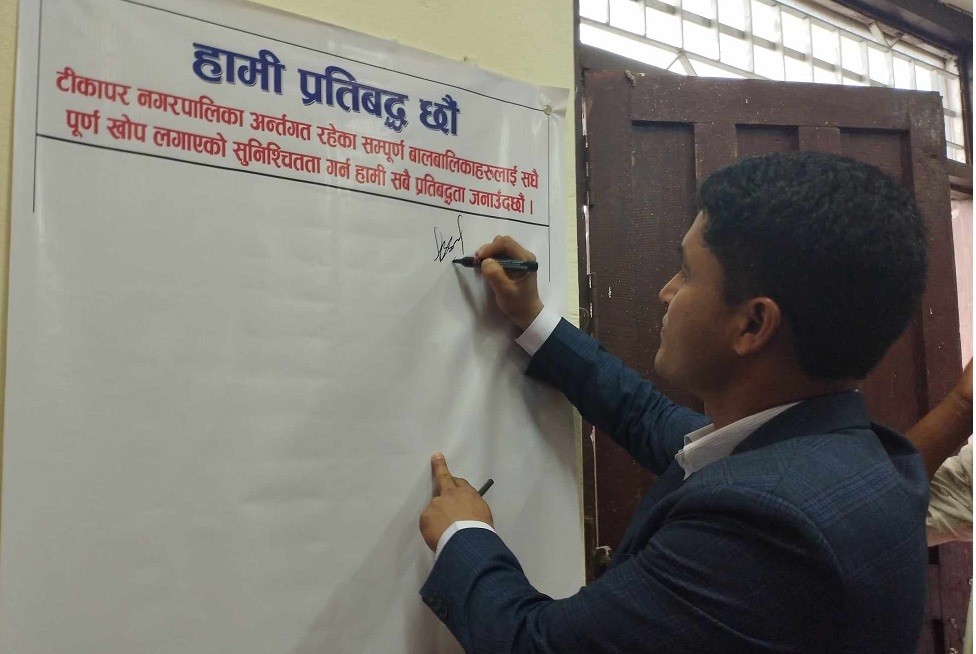 हामी प्रतिबद्ध छौं
टीकापर नगरपालिका अर्न्तगत रहेका सम्पूर्ण बालबालिकाहरुलाई सधै
पूर्ण खोप लगाएको सुनिश्चितता गर्न हामी सबै प्रतिबद्धता जनाउँदछौं ।